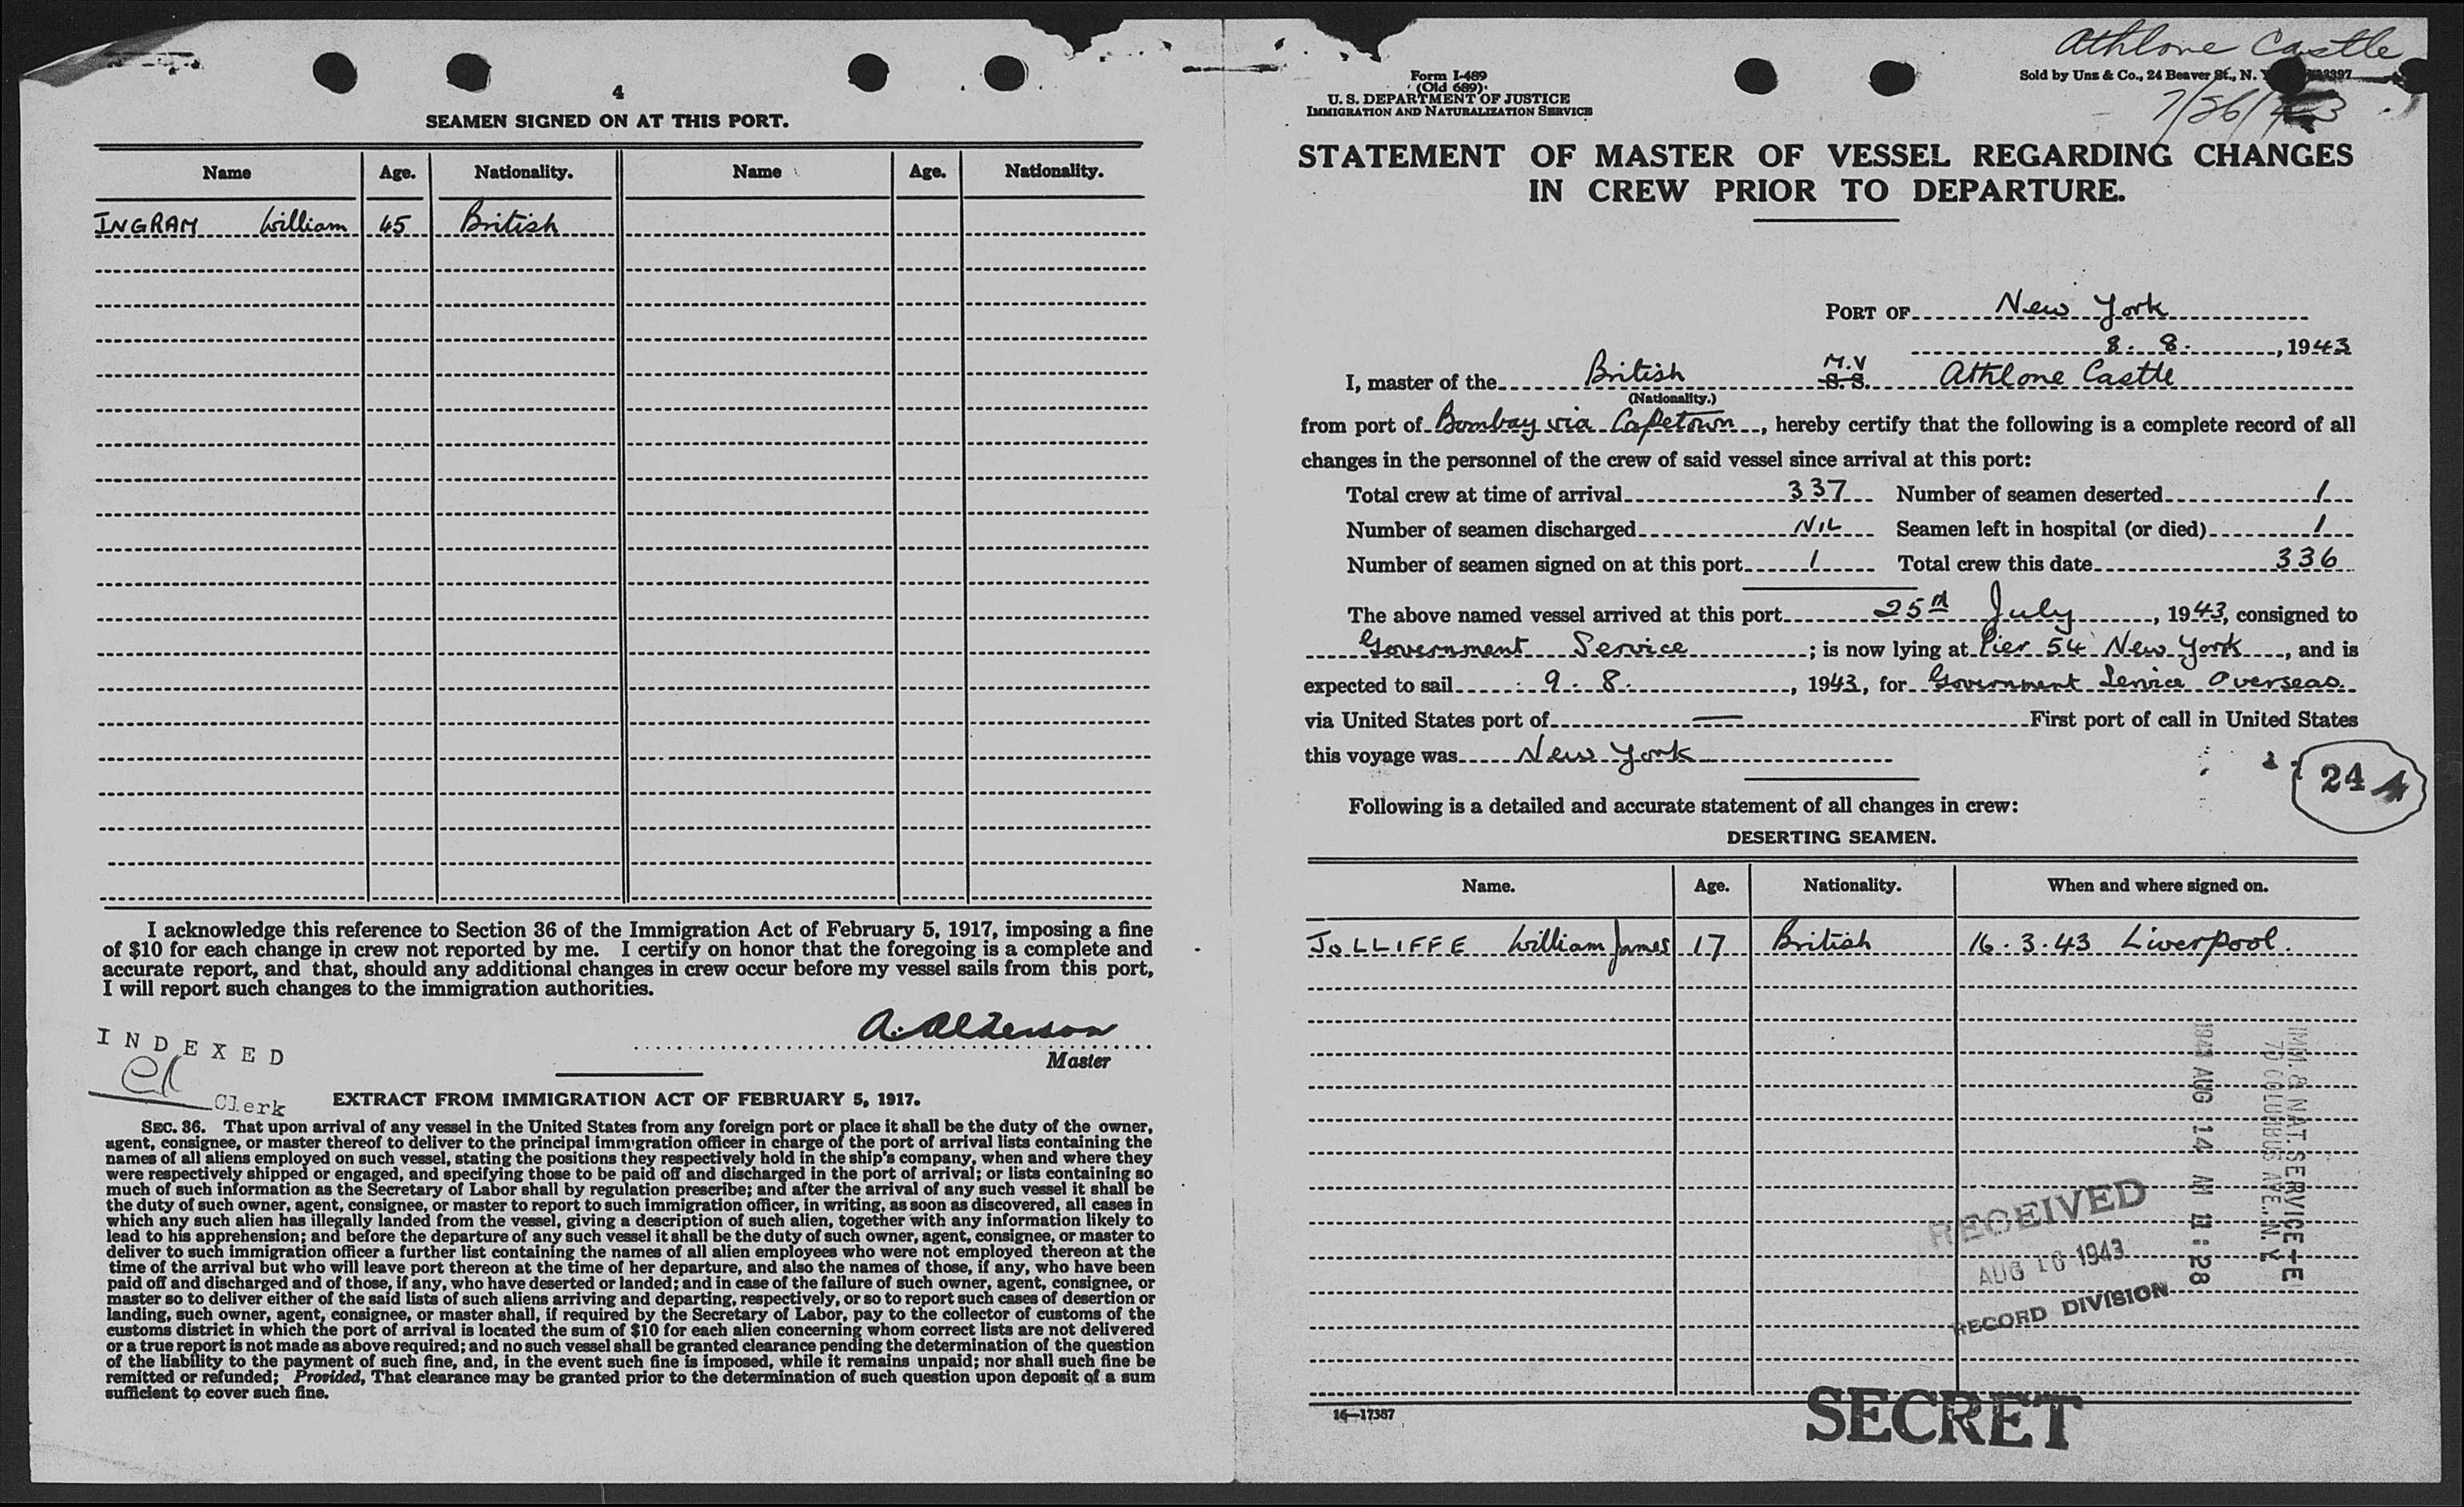 4
SEAMEN SIGNED ON AT THIS PORT.
Name Age. Nationality. Name Age. Nationality.
INGRAM William 45 British
I acknowledge this reference to Section 36 of the Immigration Act of February 5, 1917, imposing a fine
of $10 for each change in crew not reported by me. I certify on honor that the foregoing is a complete and
accurate report, and that, should any additional changes in crew occur before my vessel sails from this port,
I will report such changes to the immigration authorities.
A. Alderson
Master
INDEXED
Clerk
EXTRACT FROM IMMIGRATION ACT OF FEBRUARY 5, 1917.
SEC. 36. That upon arrival of any vessel in the United States from any foreign port or place it shall be the duty of the owner,
agent, consignee, or master thereof to deliver to the principal immigration officer in charge of the port of arrival lists containing the
names of all aliens employed on such vessel, stating the positions they respectively hold in the ship's company, when and where they
were respectively shipped or engaged, and specifying those to be paid off and discharged in the port of arrival; or lists containing so
much of such information as the Secretary of Labor shall by regulation prescribe; and after the arrival of any such vessel it shall be
the duty of such owner, agent, consignee, or master to report to such immigration officer, in writing, as soon as discovered, all cases in
which any such alien has illegally landed from the vessel, giving a description of such alien, together with any information likely to
lead to his apprehension; and before the departure of any such vessel it shall be the duty of such owner, agent, consignee, or master to
deliver to such immigration officer a further list containing the names of all alien employees who were not employed thereon at the
time of the arrival but who will leave port thereon at the time of her departure, and also the names of those, if any, who have been
paid off and discharged and of those, if any, who have deserted or landed; and in case of the failure of such owner, agent, consignee, or
master so to deliver either of the said lists of such aliens arriving and departing, respectively, or so to report such cases of desertion or
landing, such owner, agent, consignee, or master shall, if required by the Secretary of Labor, pay to the collector of customs of the
customs district in which the port of arrival is located the sum of $10 for each alien concerning whom correct lists are not delivered
or a true report is not made as above required; and no such vessel shall be granted clearance pending the determination of the question
of the liability to the payment of such fine, and, in the event such fine is imposed, while it remains unpaid; nor shall such fine be
remitted or refunded; Provided, That clearance may be granted prior to the determination of such question upon deposit of a sum
sufficient to cover such fine.
Athlone Castle
Form I-489
(Old 689)
U. S. DEPARTMENT OF JUSTICE
IMMIGRATION AND NATURALIZATION SERVICE
Sold by Unz & Co., 24 Beaver St., N.
7/26/43
STATEMENT OF MASTER OF VESSEL REGARDING CHANGES
IN CREW PRIOR TO DEPARTURE.
PORT OF New York
8. 8. , 1943
I, master of the British M.V S. S. Athlone Castle
(Nationality.)
from port of Bombay via Capetown, hereby certify that the following is a complete record of all
changes in the personnel of the crew of said vessel since arrival at this port:
Total crew at time of arrival 337 Number of seamen deserted 1
Number of seamen discharged NIL Seamen left in hospital (or died) 1
Number of seamen signed on at this port 1 Total crew this date 336
The above named vessel arrived at this port 25th July, 1943, consigned to
Government Service; is now lying at Pier 54 New York, and is
expected to sail 9. 8. , 1943, for Government Service Overseas.
via United States port of — First port of call in United States
this voyage was New York
24 4
Following is a detailed and accurate statement of all changes in crew:
DESERTING SEAMEN.
Name. Age. Nationality. When and where signed on.
JOLLIFFE William James 17 British 16.3.43 Liverpool.
IMM. & NAT. SERVICE
70 COLUMBUS AVE., N. Y.
1943 AUG 14 AM 11:28
RECEIVED
AUG 16 1943
RECORD DIVISION
16—17387
SECRET